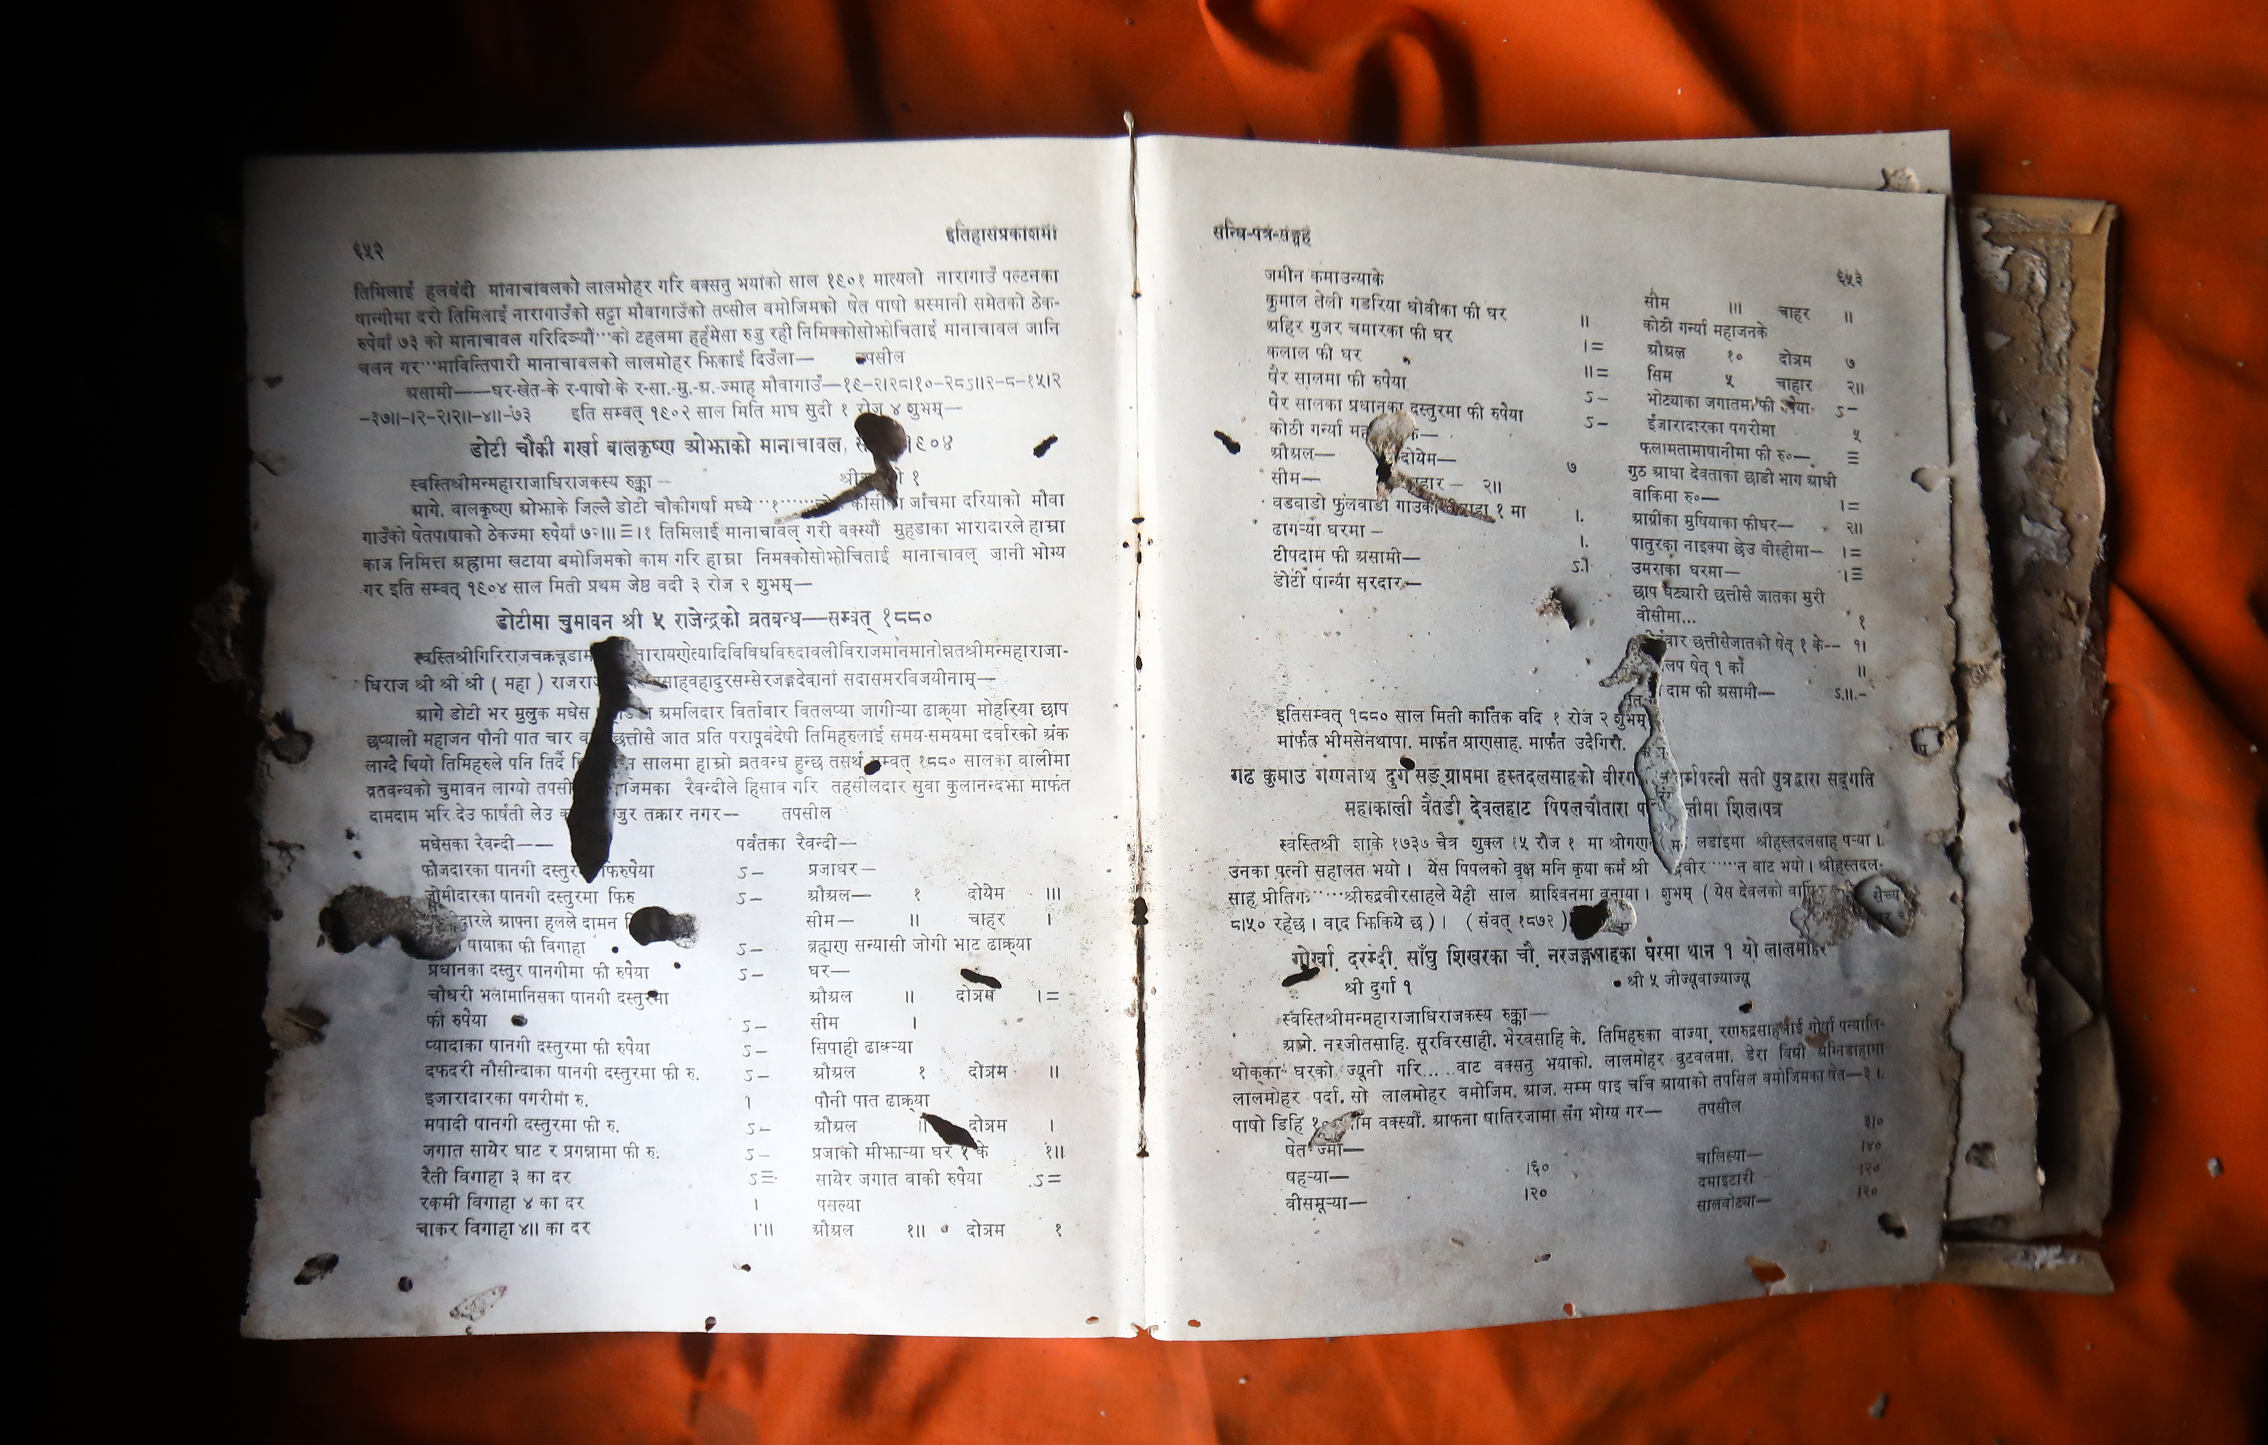 ६५२
इतिहासप्रकाशमा
तिमिलाई हलवंदी मानाचावलको लालमोहर गरि वक्सनु भयाको साल १९०१ मात्यलो नारागाउँ पल्टनका
षान्गीमा दरो तिमिलाई नारागाउँको सट्टा मौवागाउँको तप्सील वमोजिमको षेत पाषो अस्मानी समेतको ठेक-
रुपैयाँ ७३ को मानाचावल गरिदिञ्यौं···को टहलमा हर्हमेसा रुजु रही निमिक्कोसोझोचिताई मानाचावल जानि
चलन गर···माविन्तिपारी मानाचावलको लालमोहर झिकाई दिउँला— तपसील
असामी——घर-खेत-के र-पाषो के र-सा.-मु.-अ.-ज्माह मौवागाउँ—१९-२।२८।१०-२८ऽ॥२-८-१५।२
-३७॥-१२-२।२॥-४॥-७३ इति सम्वत् १९०२ साल मिति माघ सुदी १ रोज ४ शुभम्—
डोटी चौकी गर्खा वालकृष्ण ओझाको मानाचावल, १९०४
स्वस्तिश्रीमन्महाराजाधिराजकस्य रुक्का - १
आगे. वालकृष्ण ओझाके जिल्लै डोटी चौकीगर्षा मध्ये जाँचमा दरियाको मौवा
गाउँको षेतपाषाको ठेकज्मा रुपैयाँ ७२॥।≡।१ तिमिलाई मानाचावल् गरी वक्स्यौं मुहडाका भारादारले हाम्रा
काज निमित्त अह्लामा खटाया बमोजिमको काम गरि हाम्रा निमक्कोसोझोचिताई मानाचावल् जानी भोग्य
गर इति सम्वत् १९०४ साल मिती प्रथम जेष्ठ वदी ३ रोज २ शुभम्—
डोटीमा चुमावन श्री ५ राजेन्द्रको व्रतबन्ध—सम्वत् १८८०
स्वस्तिश्रीगिरिराजचक्रचूडाम नारायणेत्यादिविविधविरुदावलीविराजमानमानोन्नतश्रीमन्महाराजा-
धिराज श्री श्री श्री ( महा ) साहवहादुरसम्सेरजङ्गदेवानां सदासमरविजयीनाम्—
आगे डोटी भर मुलुक मधेस अमलिदार विर्तावार वितलप्या जागीऱ्या ढाक्र्या मोहरिया छाप
छप्याली महाजन पौनी पात चार व छत्तीसै जात प्रति परापूर्वदेषी तिमिहरुलाई समय-समयमा दर्वारको अंक
लाग्दै थियो तिमिहरुले पनि तिर्दै सालमा हाम्रो व्रतवन्ध हुन्छ तसर्थ सम्वत् १८८० सालका वालीमा
व्रतवन्धको चुमावन लाग्यो तपसी जिमका रैवन्दीले हिसाव गरि तहसीलदार सुवा कुलानन्दझा मार्फत
दामदाम भरि देउ फार्षती लेउ जुर तक्रार नगर— तपसील
मधेसका रैवन्दी—— पर्वतका रैवन्दी—
फौजदारका पानगी दस्तुर फिरुपैया ऽ— प्रजाघर—
जीमीदारका पानगी दस्तुरमा फिरु ऽ— औअल— १ दोयेम ॥।
दारले आफ्ना हलले दामन सीम— ॥ चाहर ।
षायाका फी विगाहा ऽ— ब्रह्मण सन्यासी जोगी भाट ढाक्र्या
प्रधानका दस्तुर षानगीमा फी रुपैया ऽ— घर—
चौधरी भलामानिसका षानगी दस्तुरमा औअल ॥ दोञम ।=
फी रुपैया ऽ— सीम ।
प्यादाका षानगी दस्तुरमा फी रुपैया ऽ— सिपाही ढाक्र्या
दफदरी नौसीन्दाका षानगी दस्तुरमा फी रु. ऽ— औअल १ दोञम ॥
इजारादारका पगरीमा रु. १ पौनी पात ढाक्र्या
मषादी षानगी दस्तुरमा फी रु. ऽ— औअल ॥ दोञम ।
जगात सायेर घाट र प्रगन्नामा फी रु. ऽ— प्रजाको मीझाऱ्या घर १ के १॥
रैती विगाहा ३ का दर ऽ≡ सायेर जगात वाकी रुपैया ऽ=
रकमी विगाहा ४ का दर । पसल्या
चाकर विगाहा ४॥ का दर औअल १॥ दोञम १
सन्धि-पत्र-सङ्ग्रह
६५३
जमीन कमाउन्याके
कुमाल तेली गडरिया धोवीका फी घर ॥
अहिर गुजर चमारका फी घर ।=
कलाल फी घर ॥=
पैर सालमा फी रुपैया ऽ—
पैर सालका प्रधानका दस्तुरमा फी रुपैया ऽ—
कोठी गर्न्या
औअल— दोयेम— ७
सीम— चाहार— २॥
वडबाडो फुलवाडी गाउँका १ मा ।.
ढागऱ्या घरमा - ।.
टीपदाम फी असामी— ऽ।
डोटी षान्या सरदार—
सीम ॥। चाहर ॥
कोठी गर्न्या महाजनके
औअल १० दोञम ७
सिम ५ चाहार २॥
भोट्याका जगातमा फी रुपैया ऽ—
ईंजारादारका पगरीमा ५
फलामतामाषानीमा फी रु०— ≡
गुठ आधा देवताका छाडी भाग आधी
वाकिमा रु०— ।=
आग्रीका मुषियाका फीघर— २॥
पातुरका नाइक्या छेउ वीस्हीमा— ।=
उमराका घरमा— ।≡
छाप घट्यारी छत्तीसै जातका मुरी
वीसीमा... १
वार छत्तीसैजातको षेत् १ के-- १।
लप षेत् १ का ॥
दाम फी असामी— ऽ॥.-
इतिसम्वत् १८८० साल मिती कार्तिक वदि १ रोज २ शुभम्
मार्फत भीमसेनथापा. मार्फत प्राणसाह. मार्फत उदैगिरी.
गढ कुमाउ गणनाथ दुर्ग सङ्ग्राममा हस्तदलसाहको वीरग धर्मपत्नी सती पुत्रद्वारा सद्गति
महाकाली वैतडी देवलहाट पिपलचौतारा शिलापत्र
स्वस्तिश्री शाके १७३७ चैत्र शुक्ल १५ रोज १ मा श्रीगण लडाइमा श्रीहस्तदलसाह पऱ्या ।
उनका पत्नी सहालत भयो । येस पिपलको वृक्ष मनि कृया कर्म श्री वीर······न वाट भयो। श्रीहस्तदल-
साह प्रीतिग·····श्रीरुद्रवीरसाहले येही साल आश्विनमा वनाया। शुभम् ( येस देवलको
८।५० रहेछ । वाद झिकिये छ ) । ( संवत् १८७२ )
गोर्खा. दरम्दी. साँघु शिखरका चौ. नरजङ्गसाहका घरमा थान १ यो लालमोहर
श्री दुर्गा १ श्री ५ जीज्यूवाज्याज्यू
स्वस्तिश्रीमन्महाराजाधिराजकस्य रुक्का—
आगे. नरजीतसाहि. सूरविरसाही. भैरवसाहि के. तिमिहरुका वाज्या. रणरुद्रसाहलाई गोर्षा पन्यालि-
थोकका घरको ज्यूनी गरि.... वाट वक्सनु भयाको. लालमोहर वुटवलमा. डेरा अग्निडाहामा
लालमोहर पर्दा. सो लालमोहर वमोजिम. आज. सम्म षाइ चर्चि आयाको तपसिल वमोजिमका षेत—३।
पाषो डिहि वक्स्यौं. आफना षातिरजामा सँग भोग्य गर— तपसील
षेत ज्मा— ३।०
षहऱ्या— ।६० चालिस्या— ।४०
वीसमूऱ्या— ।२० दमाइटारी ।२०
सालवोट्या— ।२०